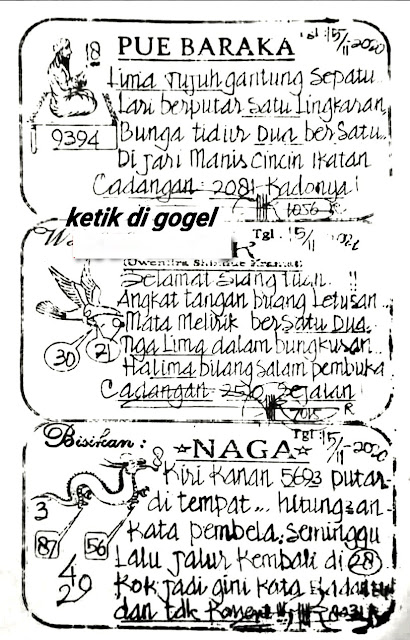 PUE BARAKA
Tgl : 15/11-2020
18
9394
Lima Tujuh gantung Sepatu
Lari berputar Satu Lingkaran
Bunga tidur Dua berSatu..
Di jari Manis Cincin Ikatan
Cadangan 2081 Kadonya!
1056 R
ketik di gogel
Tgl. 15/11
Selamat Siang tuan !!
Angkat tangan buang Letusan...
Mata Melirik berSatu Dua.
Tiga Lima dalam bungkusan...
Halima bilang salam pembuka
Cadangan Sejalan!
30
21
7015 R
Bisikan :
NAGA
Tgl : 15/11-2020
Kiri Kanan 5693 putar
di tempat... hitungan
Kata pembela, Seminggu
Lalu Jalur Kembali di 28
Kok jadi gini Kata
dan tdk
3
87
56
4
29